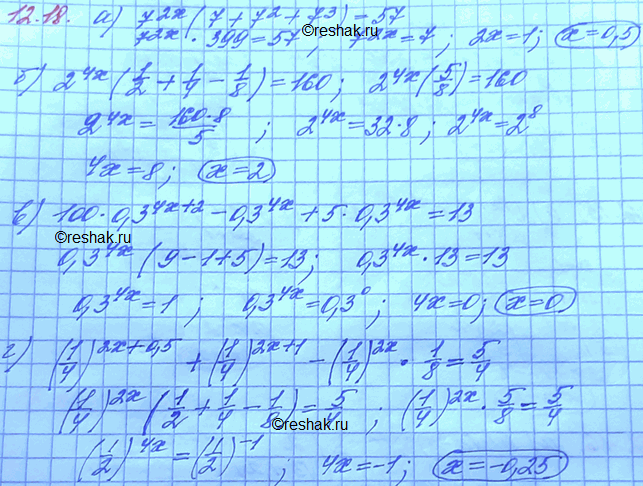 12.18. а) 7^2x (7 + 7^2 + 7^3) = 57
7^2x · 399 = 57; 7^2x = 7; 2x = 1; x = 0,5
б) 2^4x (1/2 + 1/4 - 1/8) = 160; 2^4x (5/8) = 160
2^4x = 160·8/5; 2^4x = 32·8; 2^4x = 2^8
4x = 8; x = 2
©reshak.ru
в) 100 · 0,3^4x+2 - 0,3^4x + 5 · 0,3^4x = 13
©reshak.ru
0,3^4x (9 - 1 + 5) = 13; 0,3^4x · 13 = 13
0,3^4x = 1; 0,3^4x = 0,3^0; 4x = 0; x = 0
г) (1/4)^2x+0,5 + (1/4)^2x+1 - (1/4)^2x · 1/8 = 5/4
(1/4)^2x (1/2 + 1/4 - 1/8) = 5/4; (1/4)^2x · 5/8 = 5/4
©reshak.ru
(1/2)^4x = (1/2)^-1; 4x = -1; x = -0,25